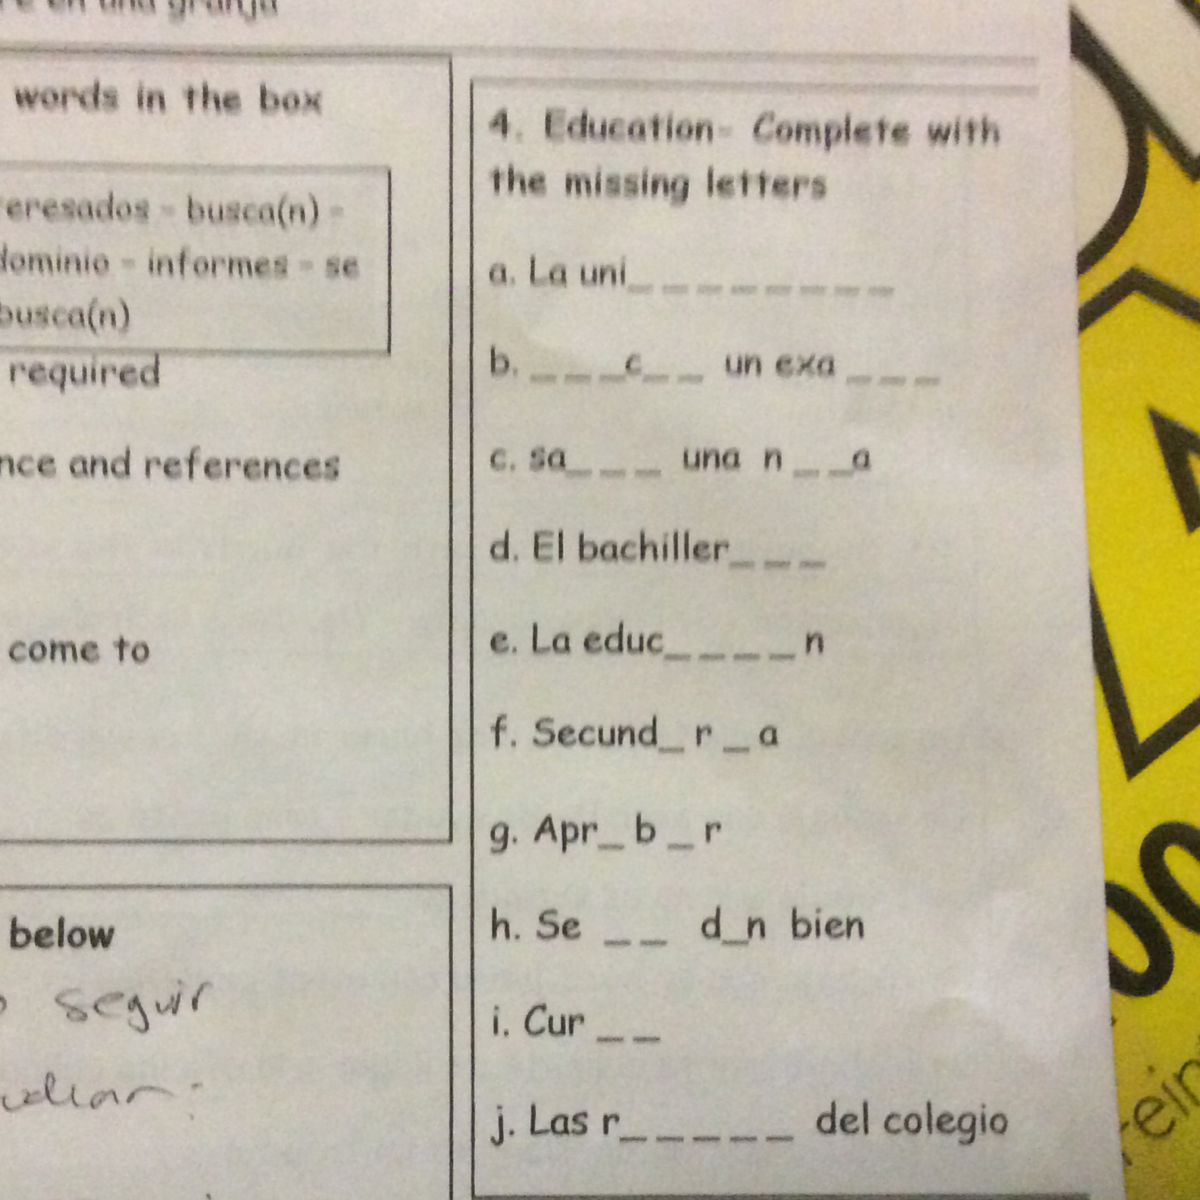 en una granja
words in the box
eresados - busca(n) -
dominio - informes - se
busca(n)
required
nce and references
come to
below
seguir
4. Education- Complete with
the missing letters
a. La uni_ _ _ _ _ _ _ _
b. _ _ _c_ _ un exa _ _ _
c. sa_ _ _ una n _ _a
d. El bachiller_ _ _
e. La educ_ _ _ _ n
f. Secund_ r _ a
g. Apr_ b _ r
h. Se _ _ d_n bien
i. Cur _ _
j. Las r_ _ _ _ _ del colegio